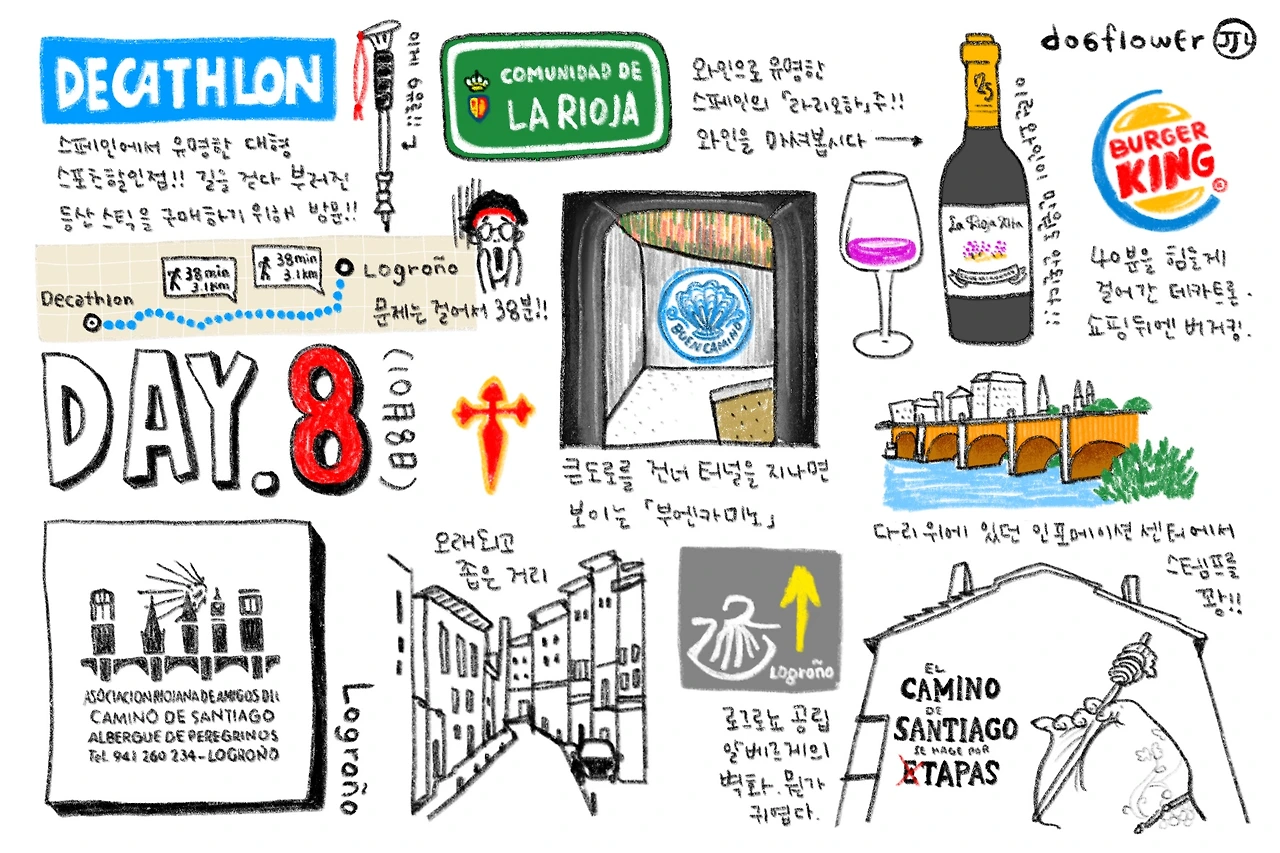 DECATHLON
스페인에서 유명한 대형
스포츠할인점!! 길을 걷다 부러진
등산 스틱을 구매하기 위해 방문!!
이게 6유로!!
COMUNIDAD DE
LA RIOJA
와인으로 유명한
스페인의 「라리오하」주!!
와인을 마셔봅시다
이런 와인이 만원도 안한다!!
La Rioja Alta
dogflower JJL
BURGER
KING
40분을 힘들게
걸어간 데카트론.
쇼핑뒤엔 버거킹.
Decathlon
38min
3.1km
38min
3.1km
Logroño
문제는 걸어서 38분!!
DAY.8
(10月8日)
BUEN CAMINO
큰도로를 건너 터널을 지나면
보이는 「부엔카미노」
다리위에 있던 인포메이션 센터에서
스탬프를
쾅!!
ASOCIACION RIOJANA DE AMIGOS DEL
CAMINO DE SANTIAGO
ALBERGUE DE PEREGRINOS
Tel. 941 260 234-LOGROÑO
Logroño
오래되고
좁은 거리
Logroño
로그로뇨 공립
알베르게의
벽화. 뭔가
귀엽다.
EL
CAMINO
DE
SANTIAGO
SE HACE POR
ETAPAS